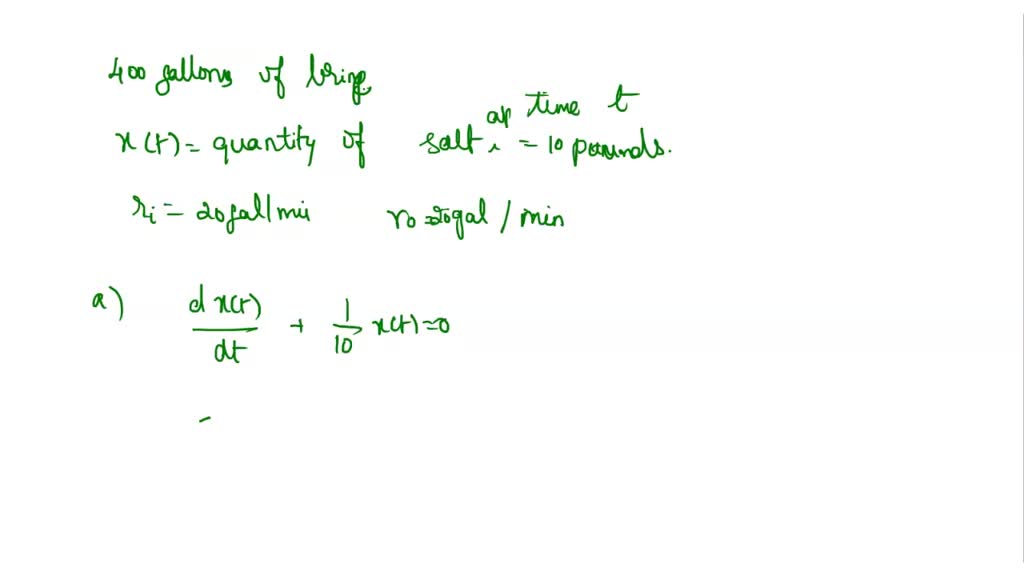 400 gallons of brine.
x(t) = quantity of salt at time t = 10 pounds.
ri = 20 gal/min ro = 20gal / min
a) dx(t)/dt + 1/10 x(t) = 0
-